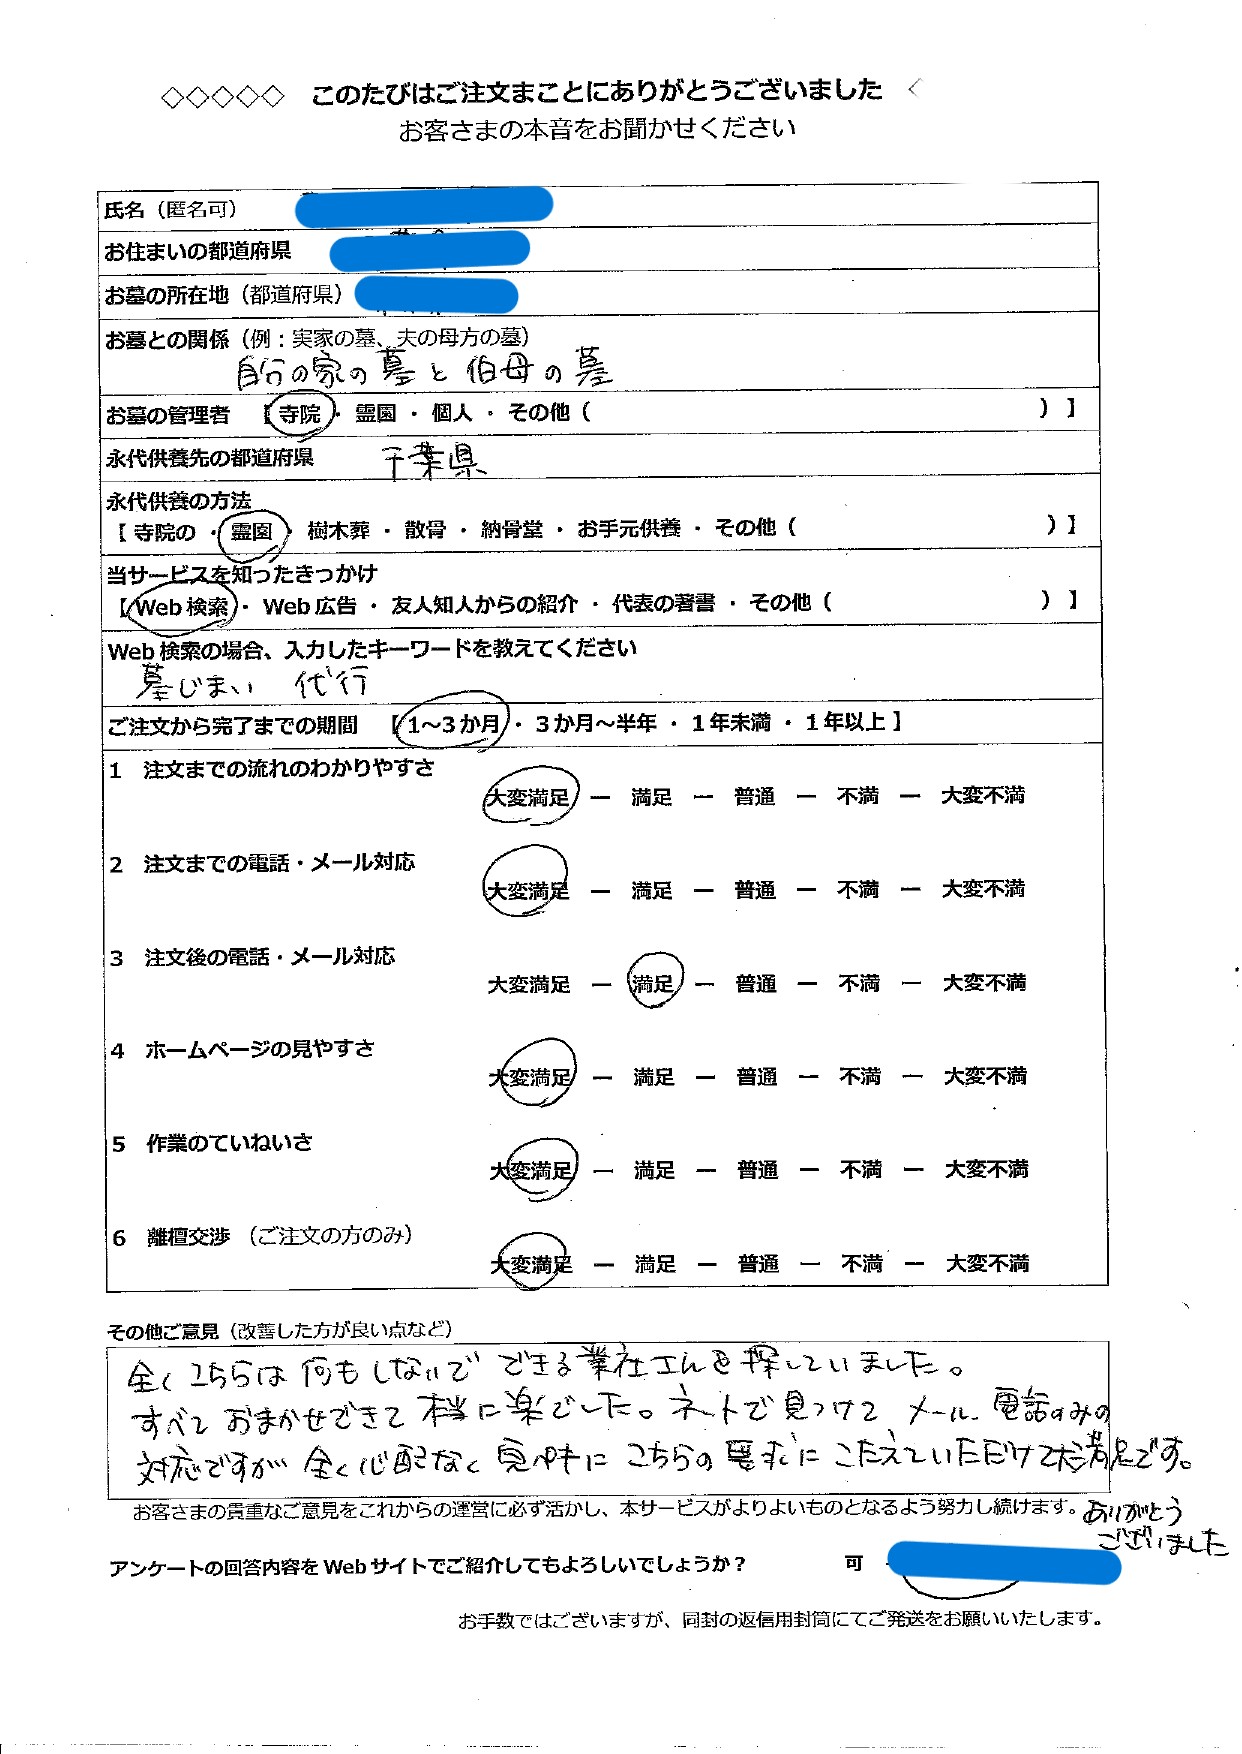 ◇◇◇◇◇ このたびはご注文まことにありがとうございました く
お客さまの本音をお聞かせください
氏名（匿名可）
お住まいの都道府県
お墓の所在地（都道府県）
お墓との関係（例：実家の墓、夫の母方の墓）
自分の家の墓と伯母の墓
お墓の管理者 【寺院・ 霊園 ・ 個人 ・ その他（ ）】
永代供養先の都道府県 千葉県
永代供養の方法
【 寺院の ・ 霊園 ・ 樹木葬 ・ 散骨 ・ 納骨堂 ・ お手元供養 ・ その他（ ）】
当サービスを知ったきっかけ
【Web 検索 ・ Web 広告 ・ 友人知人からの紹介 ・ 代表の著書 ・ その他（ ）】
Web 検索の場合、入力したキーワードを教えてください
墓じまい 代行
ご注文から完了までの期間 【1～3 か月 ・ 3 か月～半年 ・ 1 年未満 ・ 1 年以上 】
1 注文までの流れのわかりやすさ
大変満足 ー 満足 ー 普通 ー 不満 ー 大変不満
2 注文までの電話・メール対応
大変満足 ー 満足 ー 普通 ー 不満 ー 大変不満
3 注文後の電話・メール対応
大変満足 ー 満足 ー 普通 ー 不満 ー 大変不満
4 ホームページの見やすさ
大変満足 ー 満足 ー 普通 ー 不満 ー 大変不満
5 作業のていねいさ
大変満足 ー 満足 ー 普通 ー 不満 ー 大変不満
6 離檀交渉 （ご注文の方のみ）
大変満足 ー 満足 ー 普通 ー 不満 ー 大変不満
その他ご意見（改善した方が良い点など）
全くこちらは何もしないでできる業社さんを探していました。
すべておまかせできて本当に楽でした。ネットで見つけてメール、電話のみの
対応ですが全く心配なく こちらの要求にこたえていただけて大満足です。
お客さまの貴重なご意見をこれからの運営に必ず活かし、本サービスがよりよいものとなるよう努力し続けます。
ありがとう
ございました
アンケートの回答内容を Web サイトでご紹介してもよろしいでしょうか？ 可
お手数ではございますが、同封の返信用封筒にてご発送をお願いいたします。